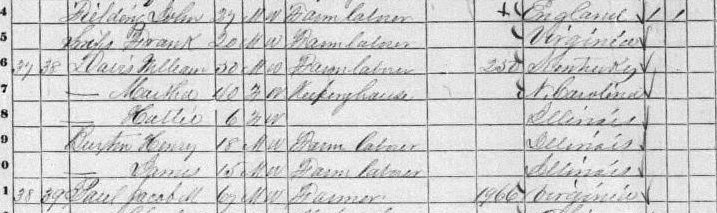 4 Fielden John 27 M W Farm labner + England 1 1
5 Frank 20 M W Farm labner Virginia
6 37 38 Davis William 50 M W Farm labner 250 Kentucky
7 — Martha 40 F W Keeping house N. Carolina
8 — Hallie 6 F W Illinois
9 Durfin Henry 18 M W Farm labner Illinois
0 — James 15 M W Farm labner Illinois
1 38 39 Paul Jacob M 67 M W Farmer 1966 Virginia